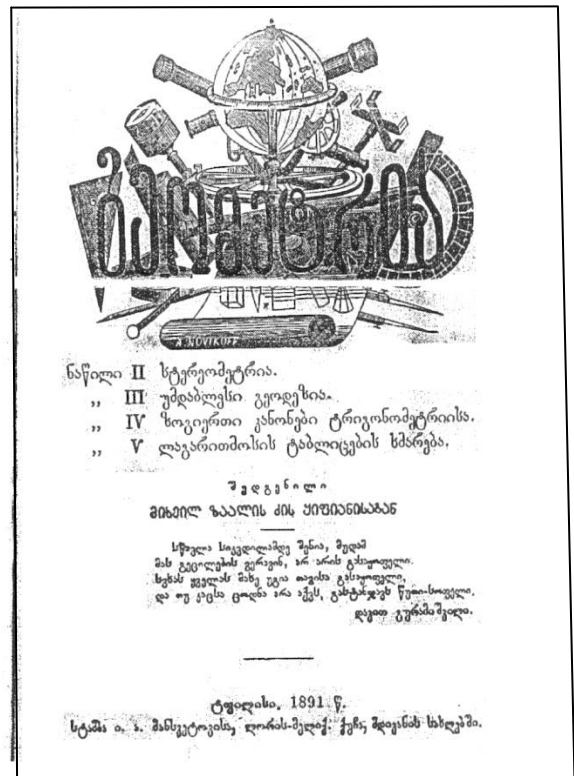 გეომეტრია
A. NOVIKOFF
ნაწილი II სტერეომეტრია.
„ III უმდაბლესი გეოდეზია.
„ IV ზოგიერთი კანონები ტრიგონომეტრიისა.
„ V ლაგარითმოსის ტაბლიცების ხმარება.
შედგენილი
მიხეილ ზაალის ძის ყიფიანისაგან
სწავლა სიკვდილამდე შენია, მუდამ
მას გეცილების ვერავინ, არ არის გასაყოფელი.
სხვას ყველას მაზე უგია თავისა გასაყოფელი,
და თუ კაცსა ცოდნა არა აქვს, გასტანჯავს წუთი-სოფელი.
დავით გურამიშვილი.
ტფილისი. 1891 წ.
სტამბა ი. ა. მანსვეტოვისა, ლორის-მელიქ. ქუჩა, მდივანის სახლებში.